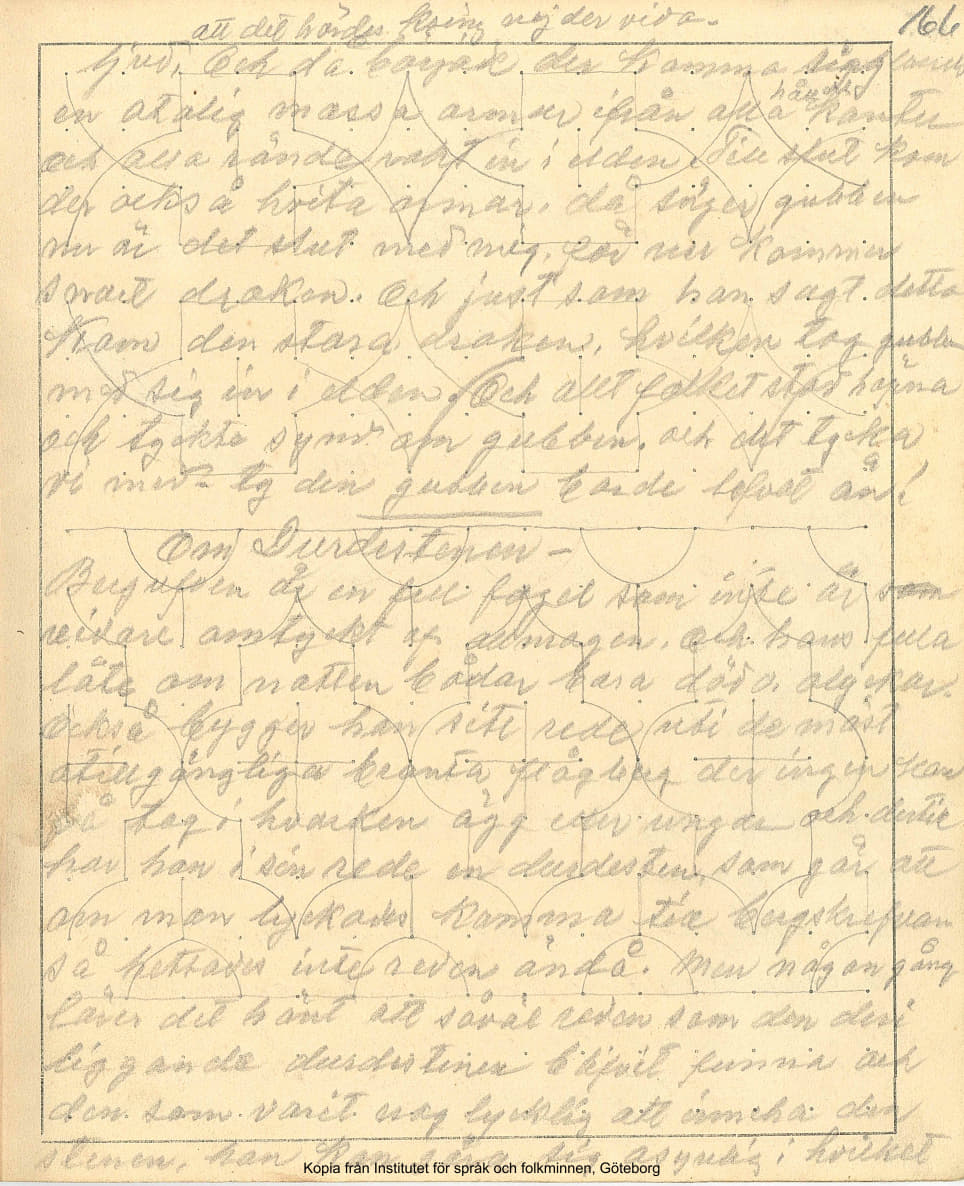 att det hördes kring nejder vida - 166
ljud, Och då började der komma
en otalig massa ormar ifrån alla håll o kanter
och alla rände rakt in i elden. Till slut kom
der också hvita ormar, då säger gubben
nu är det slut med meg, för nu kommer
snart draken. Och just som han sagt detta
kom den stora draken, hvilken tog gubben
med sig in i elden. Och allt folket stod
och tyckte synd om gubben, och det tycka
vi med - ty den gubben borde lefvat än!
Om Durdestenen -
Bergufven är en ful fogel som inte är
vidare omtyckt af almogen, och hans fula
läte om natten bådar bara död o. olyckor.
också bygger han sitt rede uti de mäst
otillgängliga branta flågberg der ingen kan
få tag i hvarken ägg eller ungar och dertill
har han i sin rede en durdesten, som gör att
om man lyckades komma till bergskrefvan
så hettades inte reden ändå. Men någon gång
läres det hänt att såväl reden som den deri
liggande durdestenen blifvit funna och
den som varit nog lycklig att inneha den
stenen, han kan göra sig osynlig i hvilket
Kopia från Institutet för språk och folkminnen, Göteborg